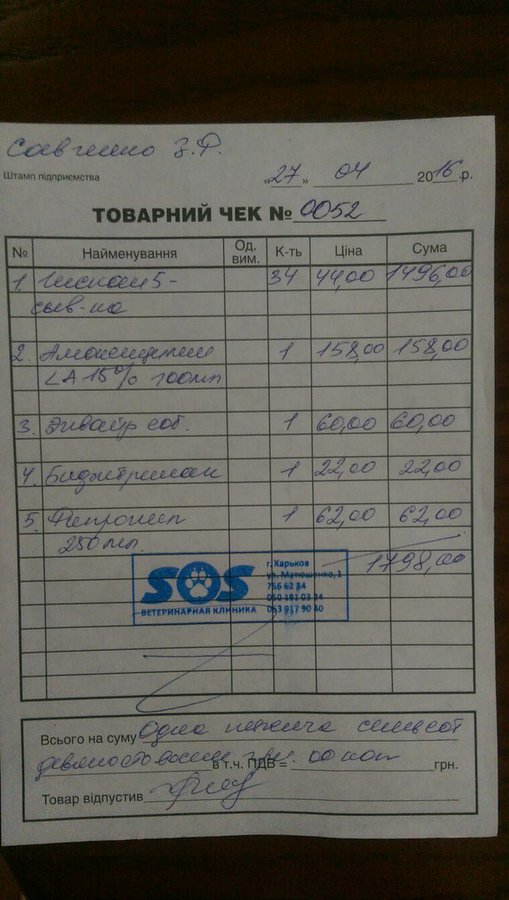 Савченко З.Ф.
Штамп підприємства
„27„ 04 2016 р.
ТОВАРНИЙ ЧЕК № 0052
№ Найменування Од. вим. К-ть Ціна Сума
1. 5- 34 44,00 1496,00
2. Амоксициллин 1 158,00 158,00
LA 15% 100мл
3. соб. 1 60,00 60,00
4. 1 22,00 22,00
5. Фипронил 1 62,00 62,00
250мл.
1798,00
SOS
ВЕТЕРИНАРНАЯ КЛИНИКА
г. Харьков
ул. Матюшенко, 1
756 62 84
050 181 03 24
063 917 90 40
Всього на суму Одна тисяча сімсот
девяносто восем грн. 00 коп
в т.ч. ПДВ = грн.
Товар відпустив